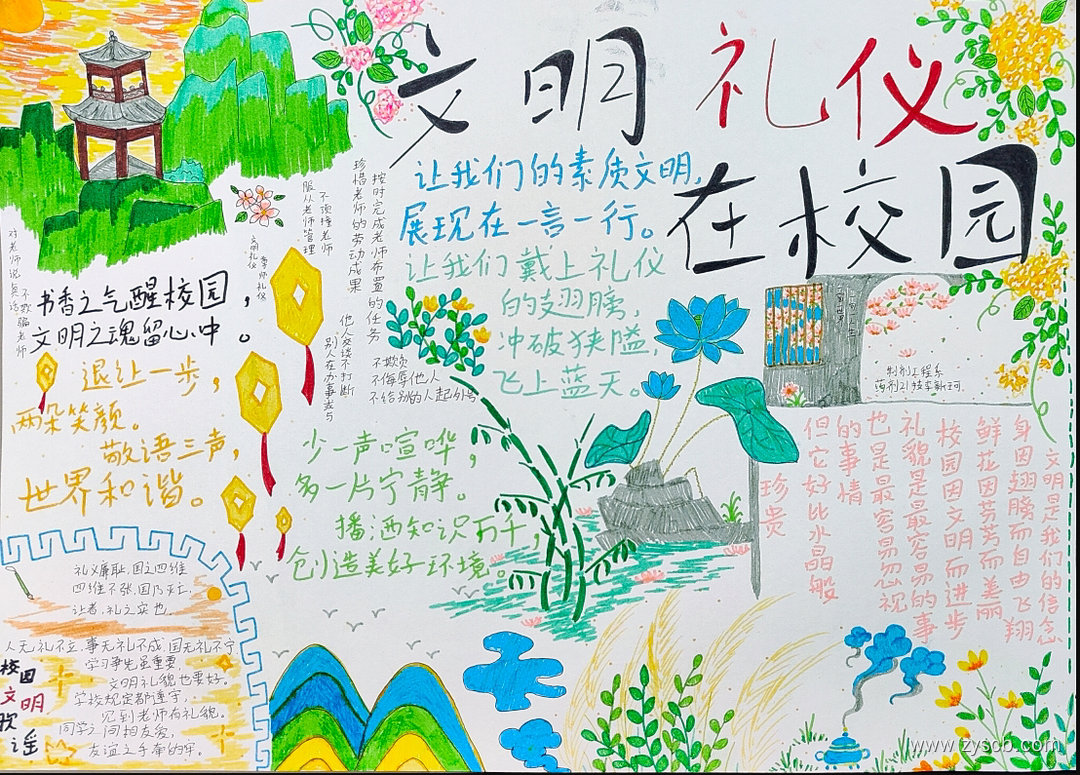 文明礼仪
在校园
让我们的素质文明，
展现在一言一行。
让我们戴上礼仪
的翅膀，
冲破狭隘，
飞上蓝天。
按时完成老师布置的任务
珍惜老师的劳动成果
不顶撞老师
服从老师管理
对老师说真话
不欺骗老师
书香之气醒校园，
文明之魂留心中。
退让一步，
两朵笑颜。
敬语三声，
世界和谐。
他人交谈不打断
不欺负
不侮辱他人
不给别的人起外号
少一声喧哗，
多一片宁静。
播洒知识万千，
创造美好环境。
文明是我们的信念
身因翅膀而自由飞翔
鲜花因芬芳而美丽
校园因文明而进步
礼貌是最容易的事
也是最容易忽视
的事情
但它好比水晶般
珍贵
礼义廉耻，国之四维
四维不张，国乃灭亡。
让者，礼之实也。
人无礼不立，事无礼不成，国无礼不宁
校园
文明
歌
谣
学习争先虽重要，
文明礼貌也要好。
学校规定都遵守，
见到老师有礼貌。
同学之间相友爱，
友谊之手牵的牢。
www.zyscb.com